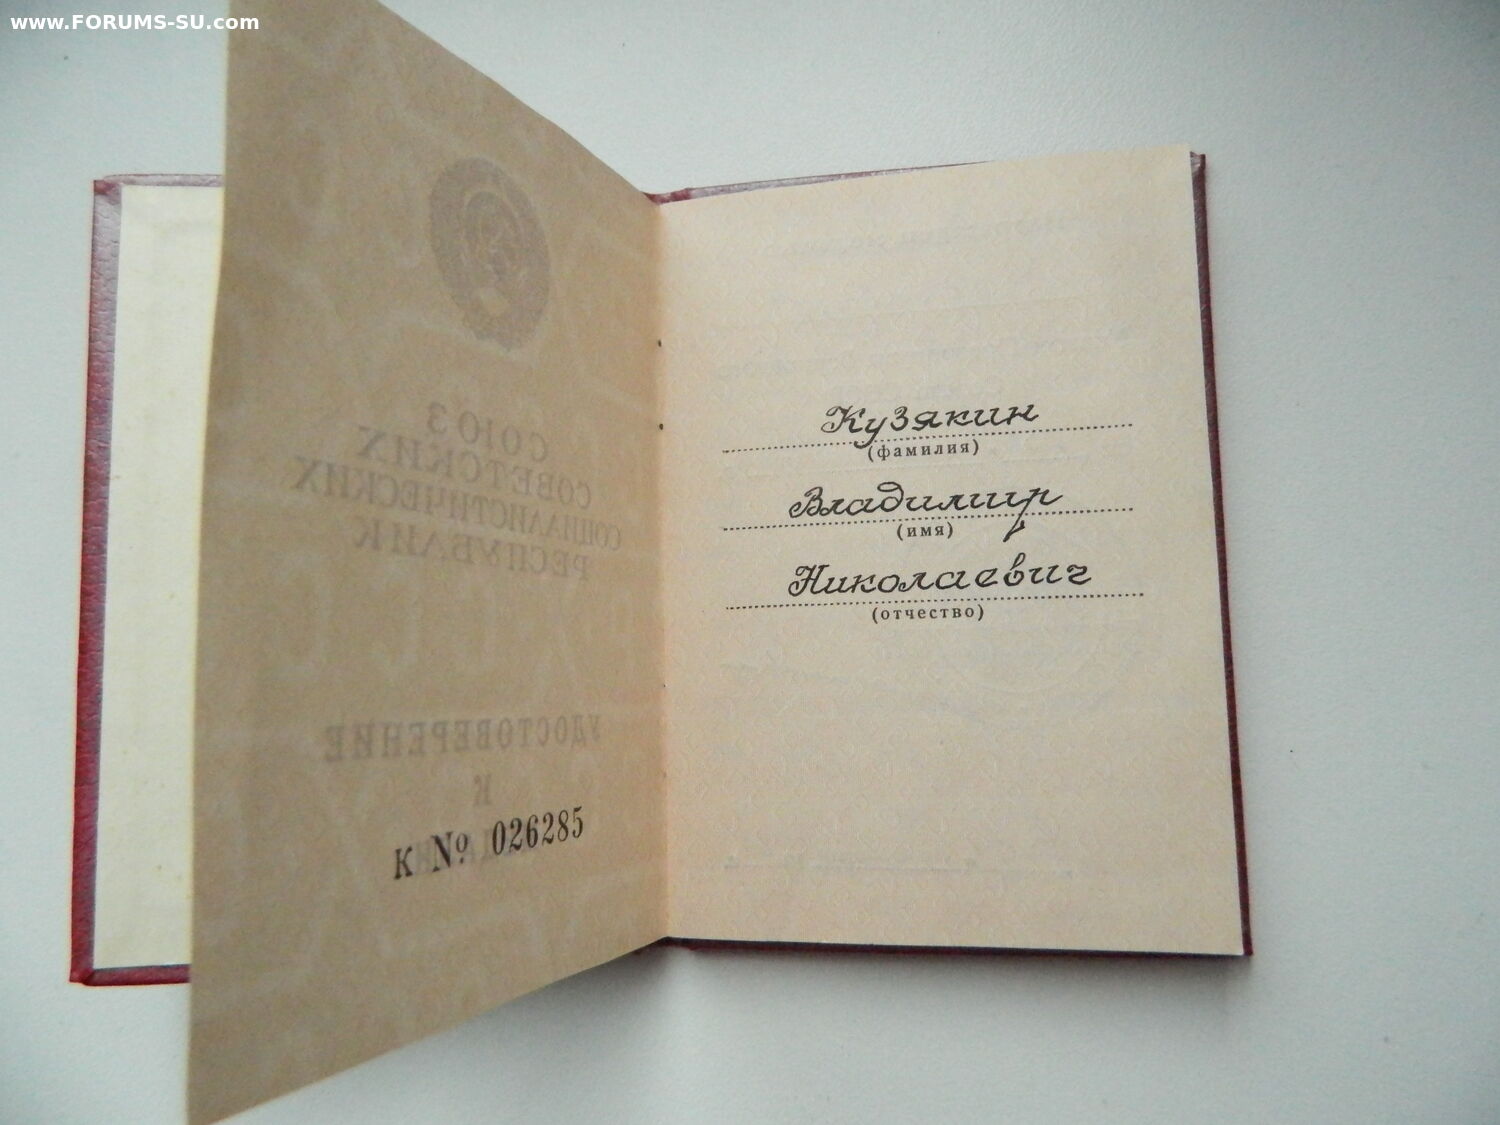 www.FORUMS-SU.com
СОЮЗ
СОВЕТСКИХ
СОЦИАЛИСТИЧЕСКИХ
РЕСПУБЛИК
УДОСТОВЕРЕНИЕ
К
К № 026285
Кузякин
(фамилия)
Владимир
(имя)
Николаевич
(отчество)